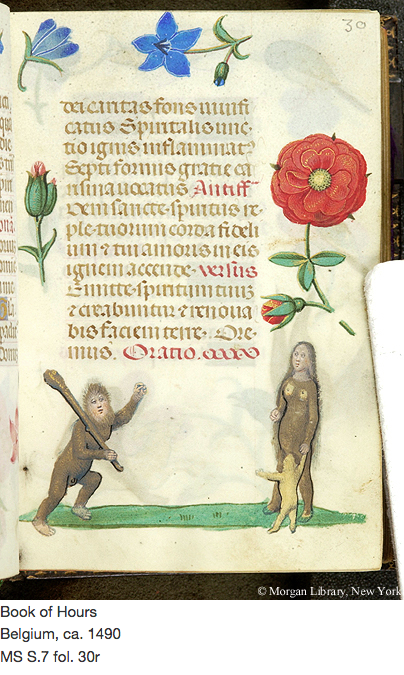 30
dei caritas fons uiuifi
catus Spiritalis unc-
tio ignis inflammat?
Septiformis gratie ca
risma uocatus Antiff
Veni sancte spiritus re-
ple tuorum corda fideli
um & tui amoris in eis
ignem accende. versus
Emitte spiritum tuum
& creabuntur & renoua
bis faciem terre. Ore-
mus. Oratio.
© Morgan Library, New York
Book of Hours
Belgium, ca. 1490
MS S.7 fol. 30r